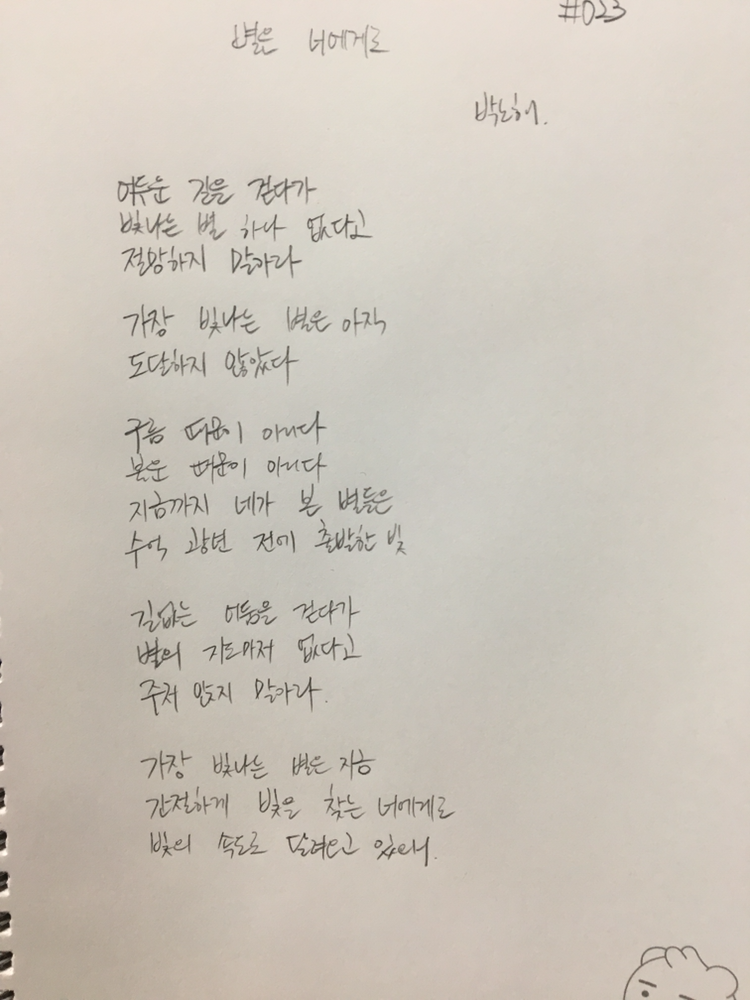 #023
별은 너에게로
박노해.
어두운 길을 걷다가
빛나는 별 하나 없다고
절망하지 말아라
가장 빛나는 별은 아직
도달하지 않았다
구름 때문이 아니다
불운 때문이 아니다
지금까지 네가 본 별들은
수억 광년 전에 출발한 빛
길없는 어둠을 걷다가
별의 지도마저 없다고
주저 앉지 말아라.
가장 빛나는 별은 지금
간절하게 빛을 찾는 너에게로
빛의 속도로 달려오고 있으니.